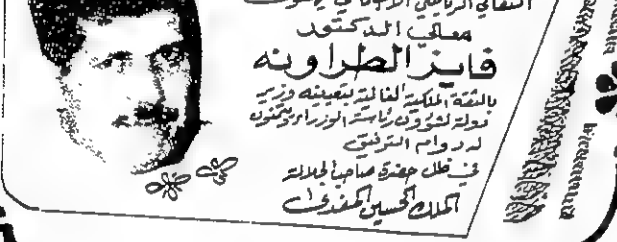 الثقافي الرياضي الاجتماعي
معالي الدكتور
فايز الطراونه
بالثقة الملكية الغالية بتعيينه وزير
دولة لشؤون رئاسة الوزراء ويتمنون
له دوام التوفيق
في ظل حضرة صاحب الجلالة
الملك الحسين المفدى